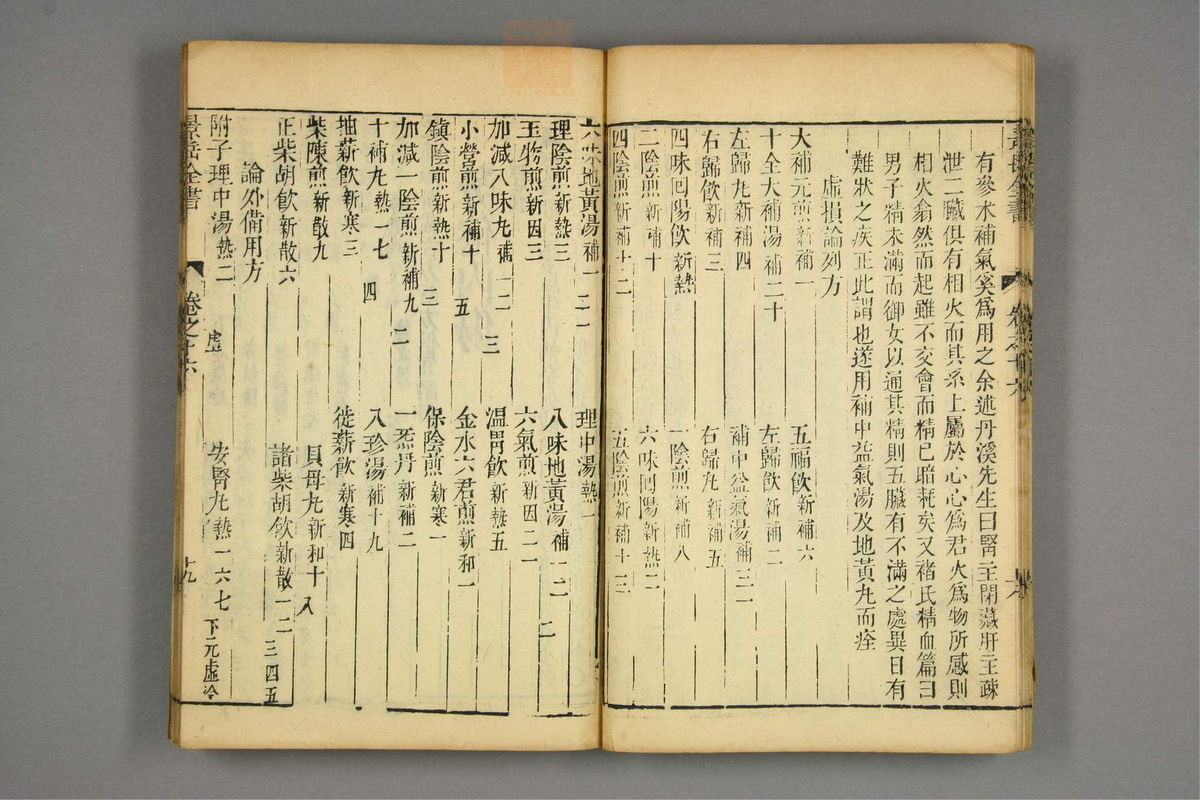 景岳全書
卷之十六
有參朮補氣奚爲用之余述丹溪先生曰腎主閉藏肝主疎
泄二臟俱有相火而其系上屬於心心爲君火爲物所感則
相火翕然而起雖不交會而精已暗耗矣又褚氏精血篇曰
男子精未滿而御女以通其精則五臟有不滿之處異日有
難狀之疾正此謂也遂用補中益氣湯及地黃丸而痊
虛損論列方
大補元煎 新補一
五福飲 新補六
十全大補湯 補二十
左歸飲 新補二
左歸丸 新補四
補中益氣湯 補三二
右歸飲 新補三
右歸丸 新補五
四味回陽飲 新熱
一陰煎 新補八
二陰煎 新補十
六味回陽 新熱二
四陰煎 新補十二
五陰煎 新補十三
六味地黃湯 補一二一
理中湯 熱一
理陰煎 新熱三
八味地黃湯 補一二二
玉物煎 新因三
六氣煎 新因二一
加減八味丸 補一二三
溫胃飲 新熱五
小營煎 新補十五
金水六君煎 新和一
鎮陰煎 新熱十三
保陰煎 新寒一
加減一陰煎 新補九二
一炁丹 新補二
十補丸 熱一七四
八珍湯 補十九
抽薪飲 新寒三
徙薪飲 新寒四
柴陳煎 新散九
貝母丸 新和十八
正柴胡飲 新散六
諸柴胡飲 新散一二三四五
論外備用方
附子理中湯 熱二 虛
安腎丸 熱一六七 下元虛冷
景岳全書
卷之十六
十九